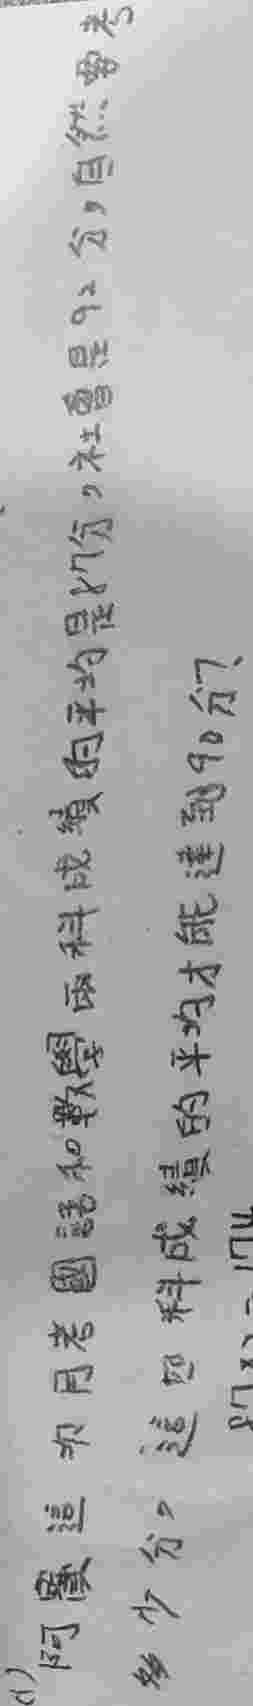 (1)
阿慶這次月考國語和數學兩科成績的平均是87分,社會是92分,自然要考
多少分,這四科成績的平均才能達到90分?
87×2=174